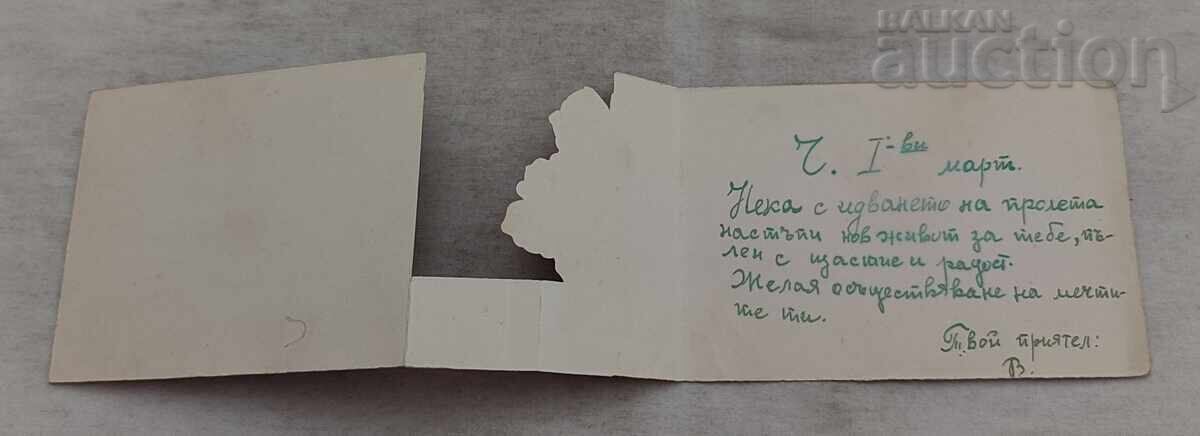 BALKAN
auction
Ч. I-ви
март.
Нека с идването на пролета
настъпи нов живот за тебе, пъ-
лен с щастие и радост.
Желая осъществяване на мечти-
те ти.
Твой приятел:
В.